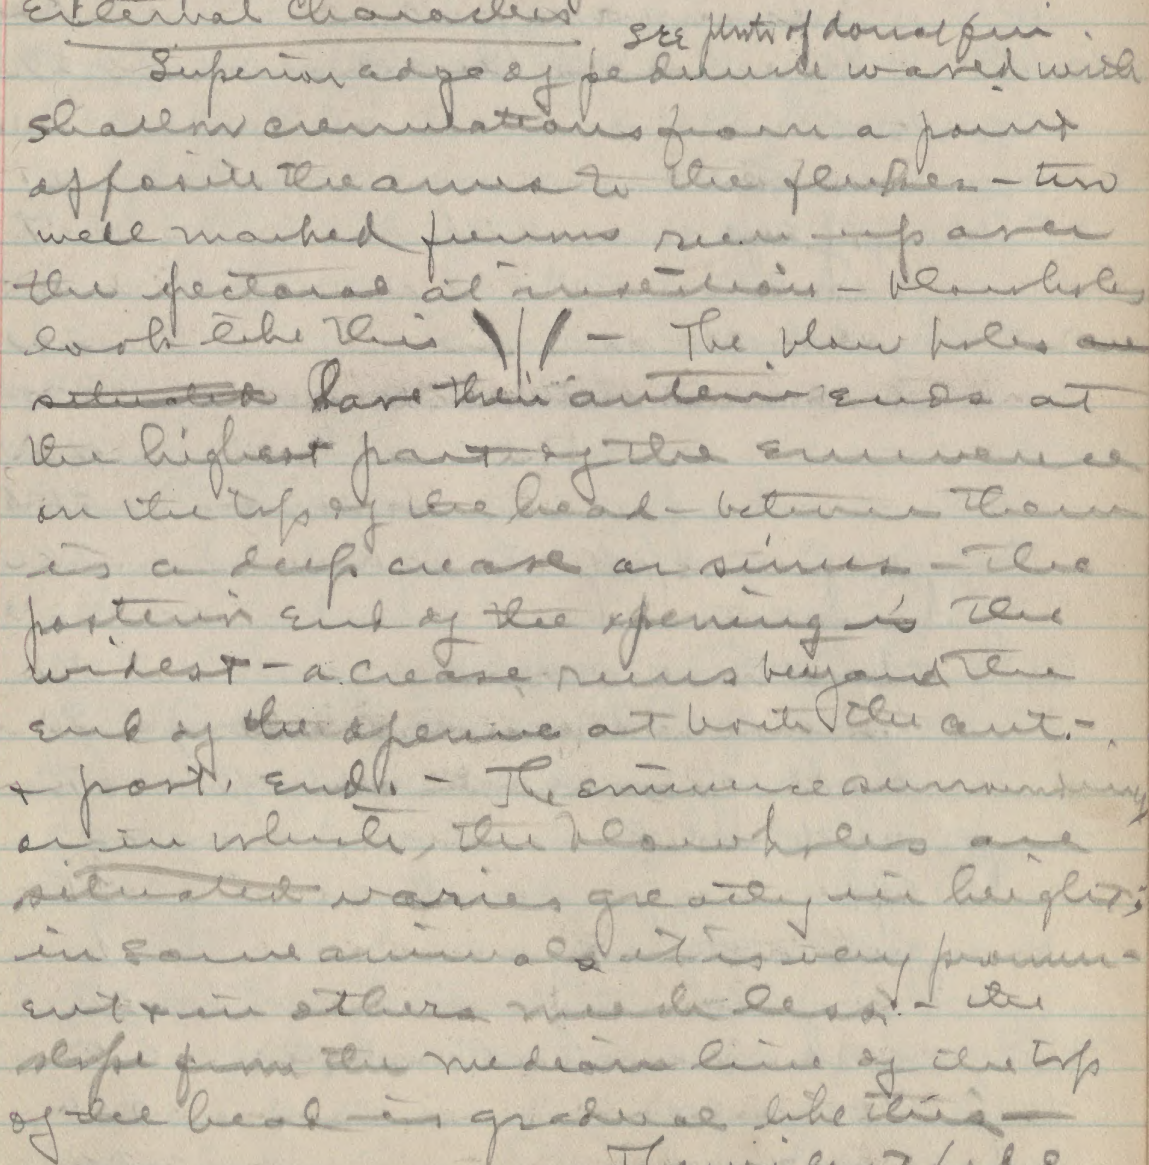 External Characters
see photo of dorsal fin.
Superior edge of peduncle waved with
shallow crenulations from a point
opposite the anus to the flukes - two
well marked furrows run up over
the pectoral at insertion - blowholes
look like this - The blow holes are
situated have their anterior ends at
the highest part of the eminence
on the top of the head - between them
is a deep crease or sinus - The
posterior end of the opening is the
widest - a crease runs beyond the
end of the opening at both the ant. -
+ post. end. - The eminence surrounding
or in which, the blowholes are
situated varies greatly in height;
in some animals it is very promin-
ent & in others much less. - the
slope from the median line of the top
of the head is gradual like this -